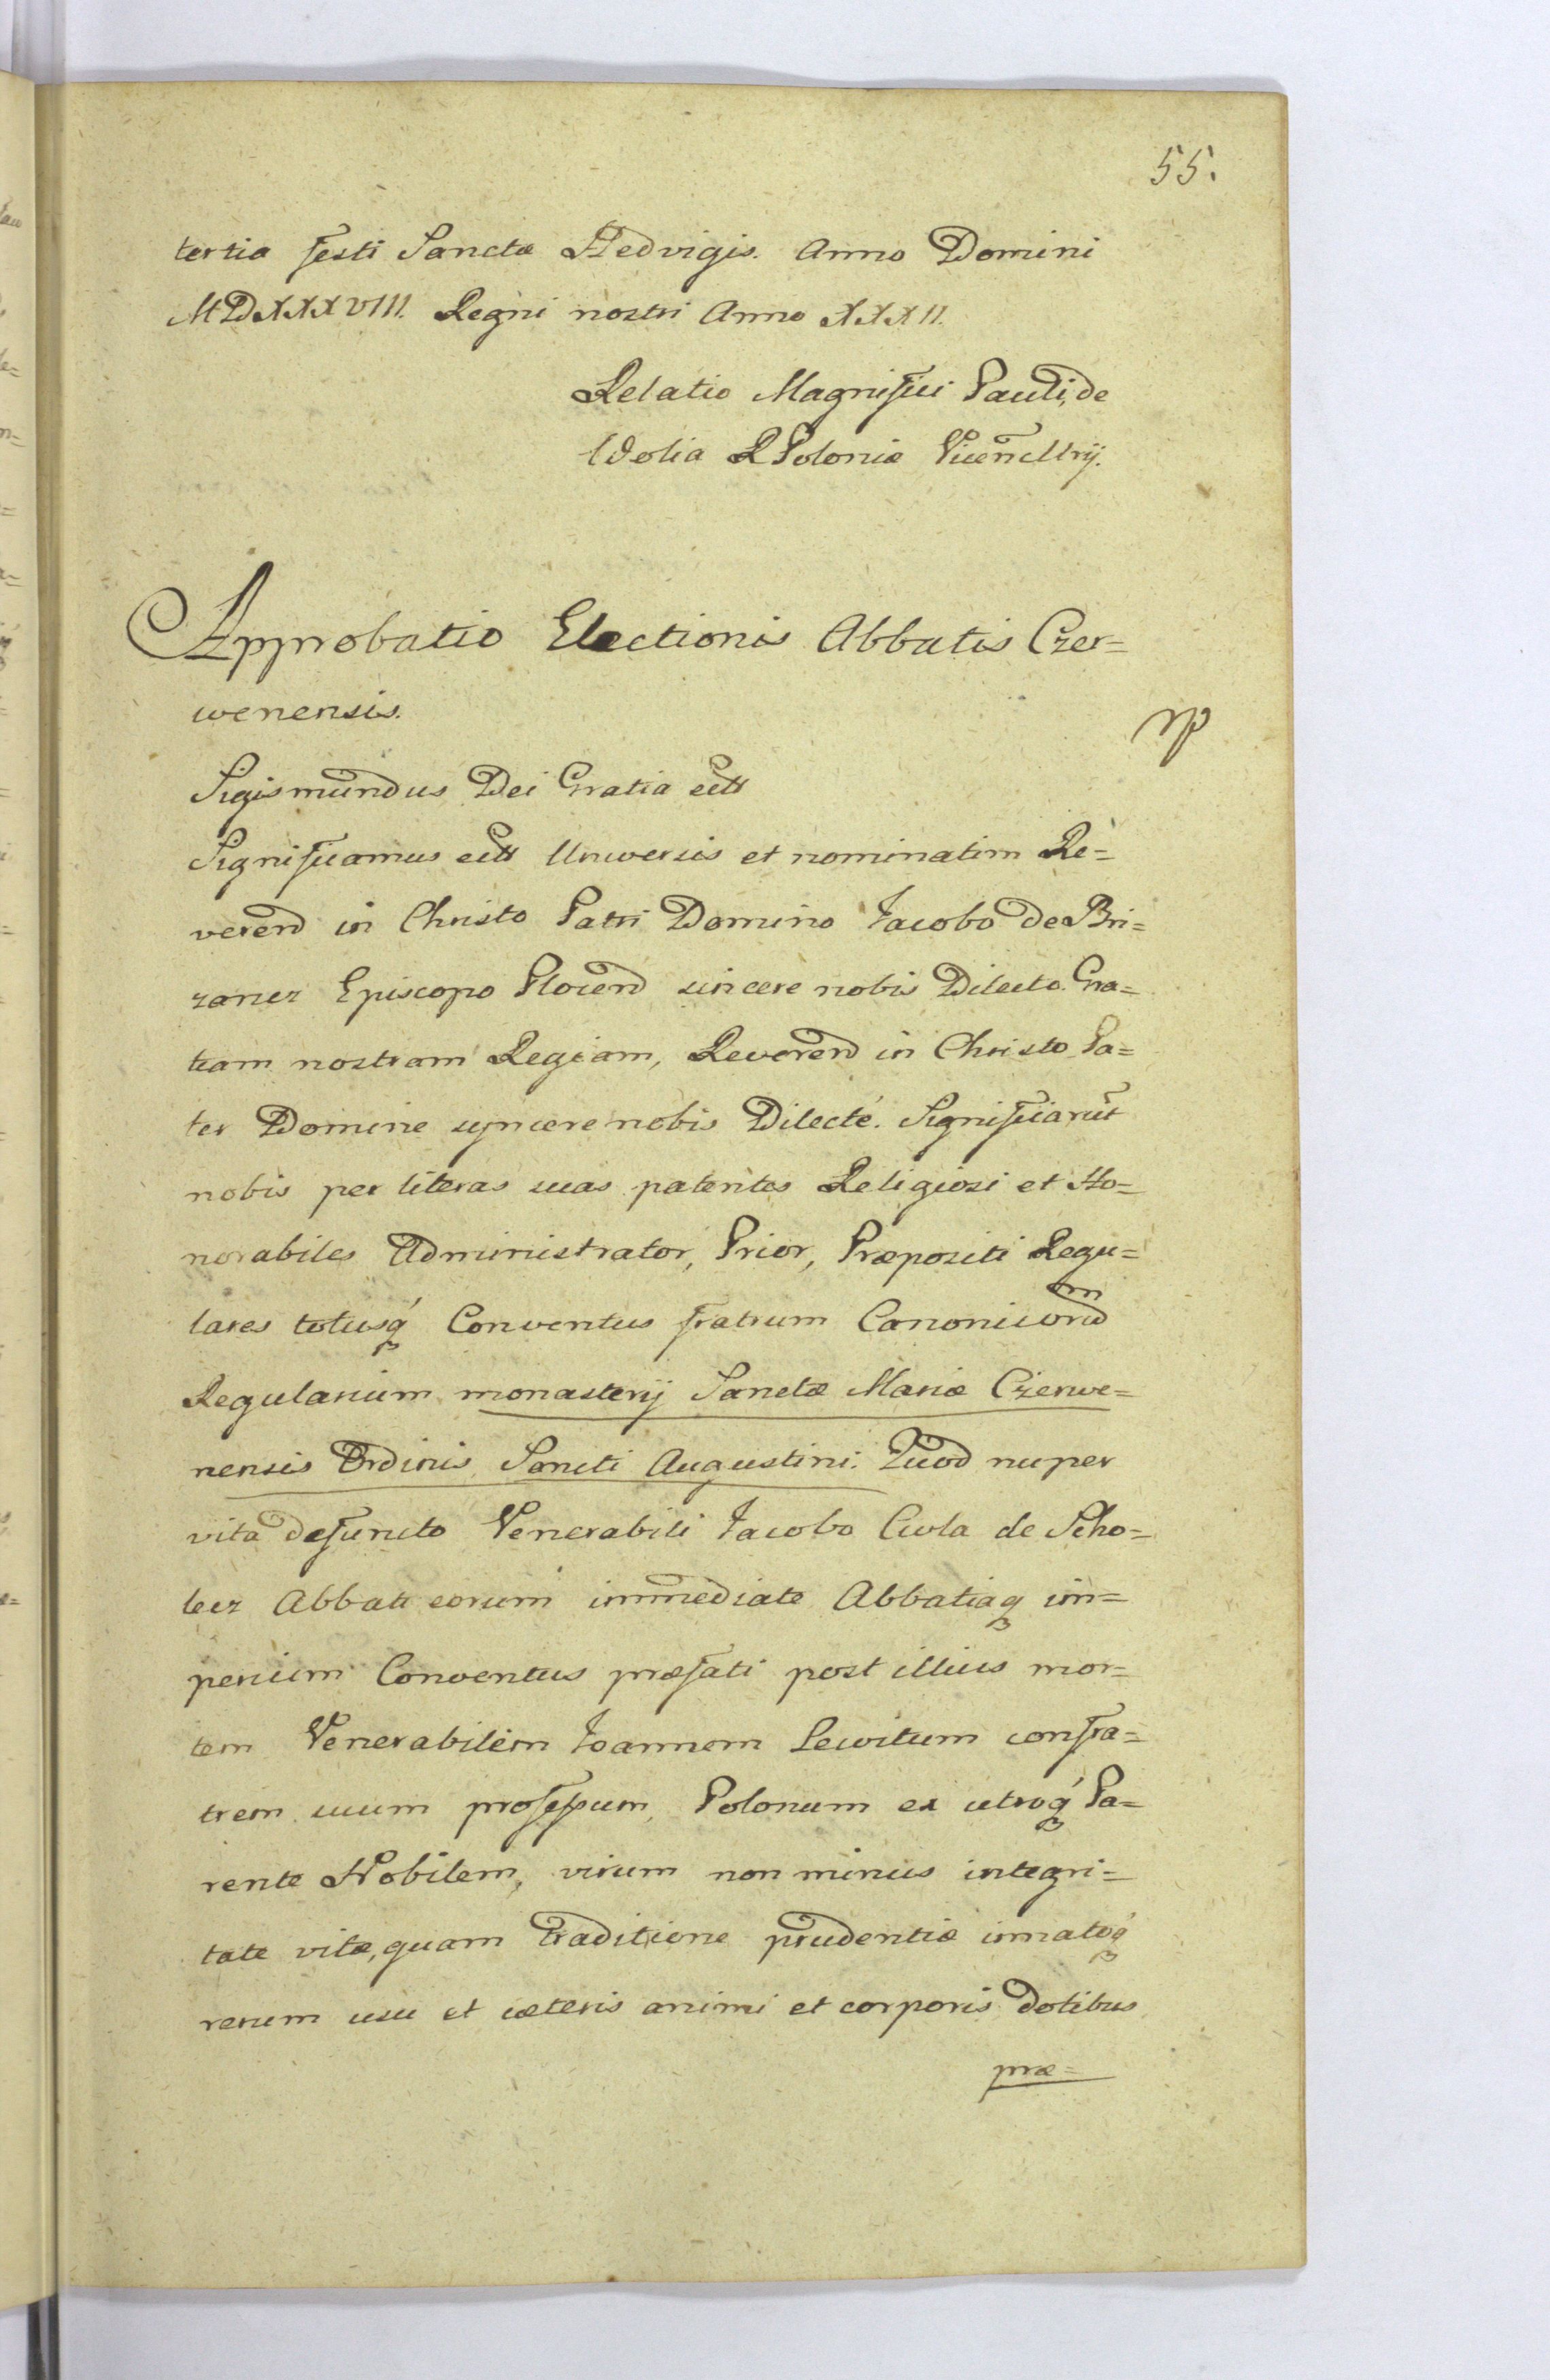 55.
tertia festi Sanctæ Hedvigis. Anno Domini
MDXXXVIII. Regni nostri Anno XXXII.
Relatio Magnifici Pauli, de
Wolia R Poloniæ Vicencllrij.
Approbatio Electionis Abbatis Czer=
wenensis.
Sigismundus Dei Gratia ectt
Significamus ectt Universis et nominatim Re=
verend in Christo Patri Domino Jacobo de Bri=
zanez Episcopo Plocend sincere nobis Dilecto. Gra=
tiam nostram Regiam, Reverend in Christo Pa=
ter Domine syncere nobis Dilecté. Significiarut
nobis per literas suas patentes Religiosi et Ho=
norabiles Administrator, Prior, Præpositi Regu=
lares totusq́ Conventus fratrum Canonicorm
Regularium monasterij Sanctæ Mariæ Czerwe=
nensis Ordinis Sancti Augustini. Quod nuper
vita defuncto Venerabili Jacobo Cwla de Scho=
lecz Abbate eorum immediate Abbatiaq im=
perium Conventus præfati post illius mor=
tem Venerabilem Joannem Lewitum confra=
trem suum professum, Polonum ex utroq́ Pa=
rente Nobilem, virum non minus integri=
tate vitæ, quam traditione prudentiæ innatoq́
rerum usu et cæteris animi et corporis dotibus
præ=